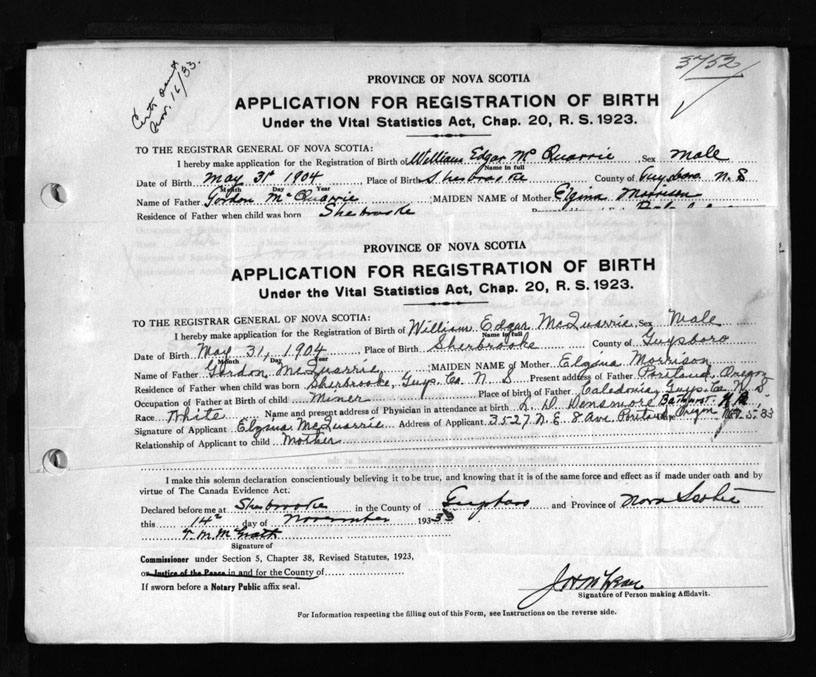 3752
Certs sent
Nov. 16/33.
PROVINCE OF NOVA SCOTIA
APPLICATION FOR REGISTRATION OF BIRTH
Under the Vital Statistics Act, Chap. 20, R. S. 1923.
TO THE REGISTRAR GENERAL OF NOVA SCOTIA:
I hereby make application for the Registration of Birth of William Edgar McQuarrie Sex Male
Name in full
Date of Birth May 31st 1904 Place of Birth Sherbrooke County of Guysboro N. S
Month Day Year
Name of Father Gordon McQuarrie ; MAIDEN NAME of Mother Elgina Morrison
Residence of Father when child was born Sherbrooke
PROVINCE OF NOVA SCOTIA
APPLICATION FOR REGISTRATION OF BIRTH
Under the Vital Statistics Act, Chap. 20, R. S. 1923.
TO THE REGISTRAR GENERAL OF NOVA SCOTIA:
I hereby make application for the Registration of Birth of William Edgar McQuarrie Sex Male
Name in full
Date of Birth May 31, 1904 Place of Birth Sherbrooke County of Guysboro
Month Day Year
Name of Father Gordon McQuarrie ; MAIDEN NAME of Mother Elgina Morrison
Residence of Father when child was born Sherbrooke, Guys. Co. N. S Present address of Father Portland, Oregon
Occupation of Father at Birth of child Miner Place of birth of Father Caledonia, Guys. Co. N. S
Race White Name and present address of Physician in attendance at birth Densmore Bathurst N.B.
Signature of Applicant Elgina McQuarrie Address of Applicant 3527 N. E. 8 Ave Portland Oregon 5-33
Relationship of Applicant to child Mother
I make this solemn declaration conscientiously believing it to be true, and knowing that it is of the same force and effect as if made under oath and by
virtue of The Canada Evidence Act:
Declared before me at Sherbrooke in the County of Guysboro and Province of Nova Scotia
this 14th day of November 1933
Signature of
Commissioner under Section 5, Chapter 38, Revised Statutes, 1923,
or Justice of the Peace in and for the County of
If sworn before a Notary Public affix seal.
Signature of Person making Affidavit.
For Information respecting the filling out of this Form, see Instructions on the reverse side.